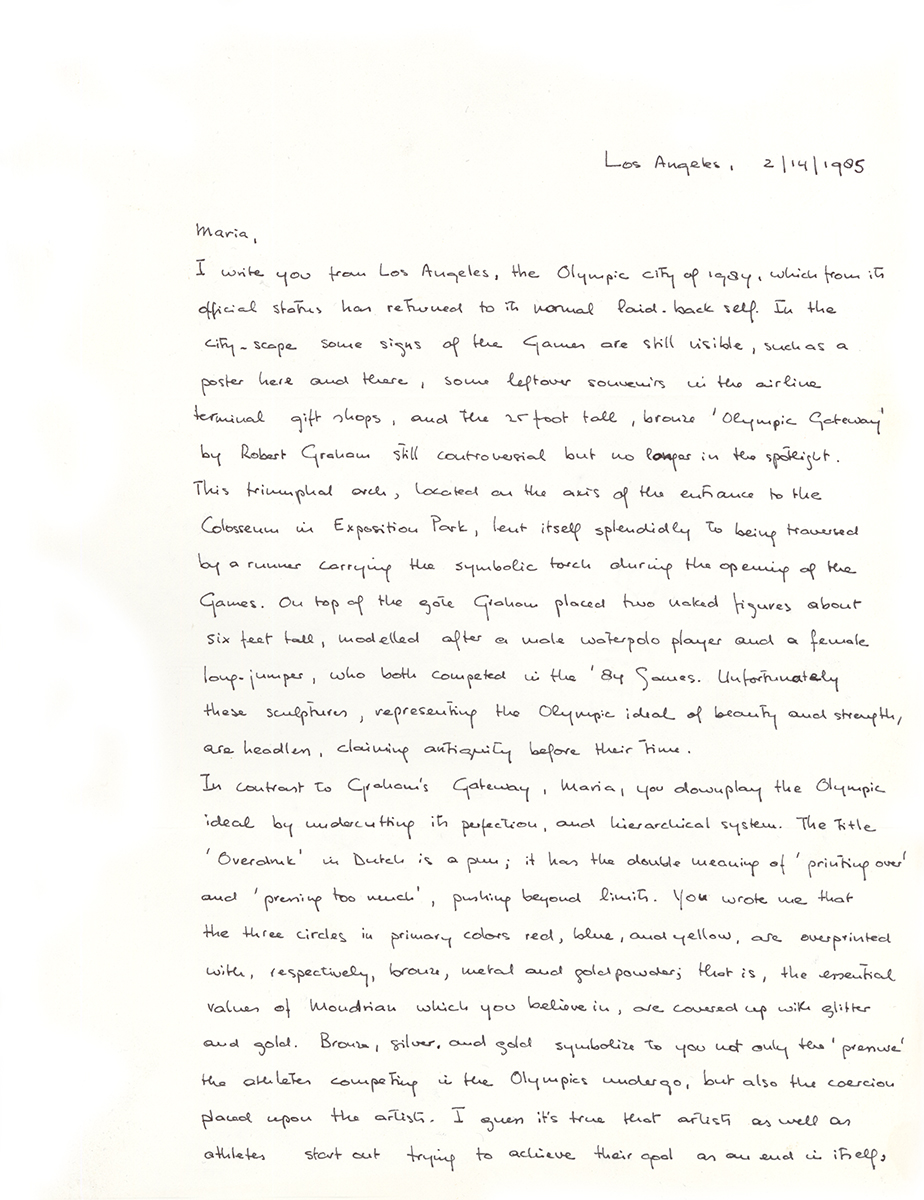 Los Angeles, 2/14/1985
Maria,
I write you from Los Angeles, the Olympic city of 1984, which from its
official status has returned to its normal laid-back self. In the
city-scape some signs of the Games are still visible, such as a
poster here and there, some leftover souvenirs in the airline
terminal gift shops, and the 25 foot tall, bronze 'Olympic Gateway'
by Robert Graham still controversial but no longer in the spotlight.
This triumphal arch, located on the axis of the entrance to the
Colosseum in Exposition Park, lent itself splendidly to being traversed
by a runner carrying the symbolic torch during the opening of the
Games. On top of the gate Graham placed two naked figures about
six feet tall, modelled after a male waterpolo player and a female
long-jumper, who both competed in the '84 Games. Unfortunately
these sculptures, representing the Olympic ideal of beauty and strength,
are headless, claiming antiquity before their time.
In contrast to Graham's Gateway, Maria, you downplay the Olympic
ideal by undercutting its perfection, and hierarchical system. The title
'Overdruk' in Dutch is a pun; it has the double meaning of 'printing over'
and 'pressing too much', pushing beyond limits. You wrote me that
the three circles in primary colors red, blue, and yellow, are overprinted
with, respectively, bronze, metal and goldpowder; that is, the essential
values of Mondrian which you believe in, are covered up with glitter
and gold. Bronze, silver, and gold symbolize to you not only the 'pressure'
the athletes competing in the Olympics undergo, but also the coercion
placed upon the artists. I guess it's true that artists as well as
athletes start out trying to achieve their goal as an end in itself,